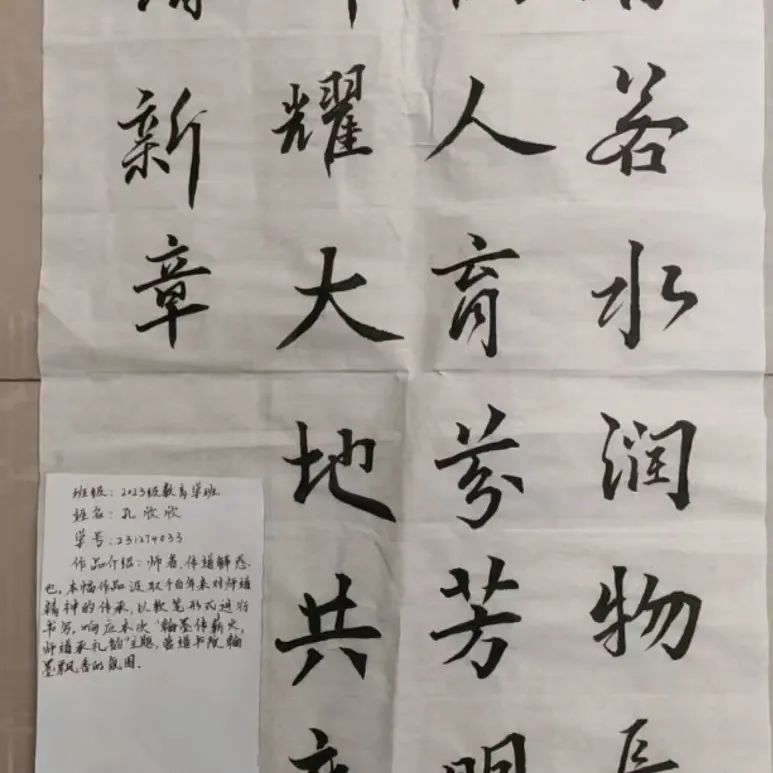 若水润物
人育芬芳明
耀大地共
新章
班级：2023级教育学班
姓名：孔欣欣
学号：231274033
作品介绍：师者，传道解惑
也。本幅作品汲取千百年来对师道
精神的传承，以软笔形式进行
书写，响应本次“翰墨传薪火，
师道承礼韵”主题，营造书院翰
墨飘香的氛围。